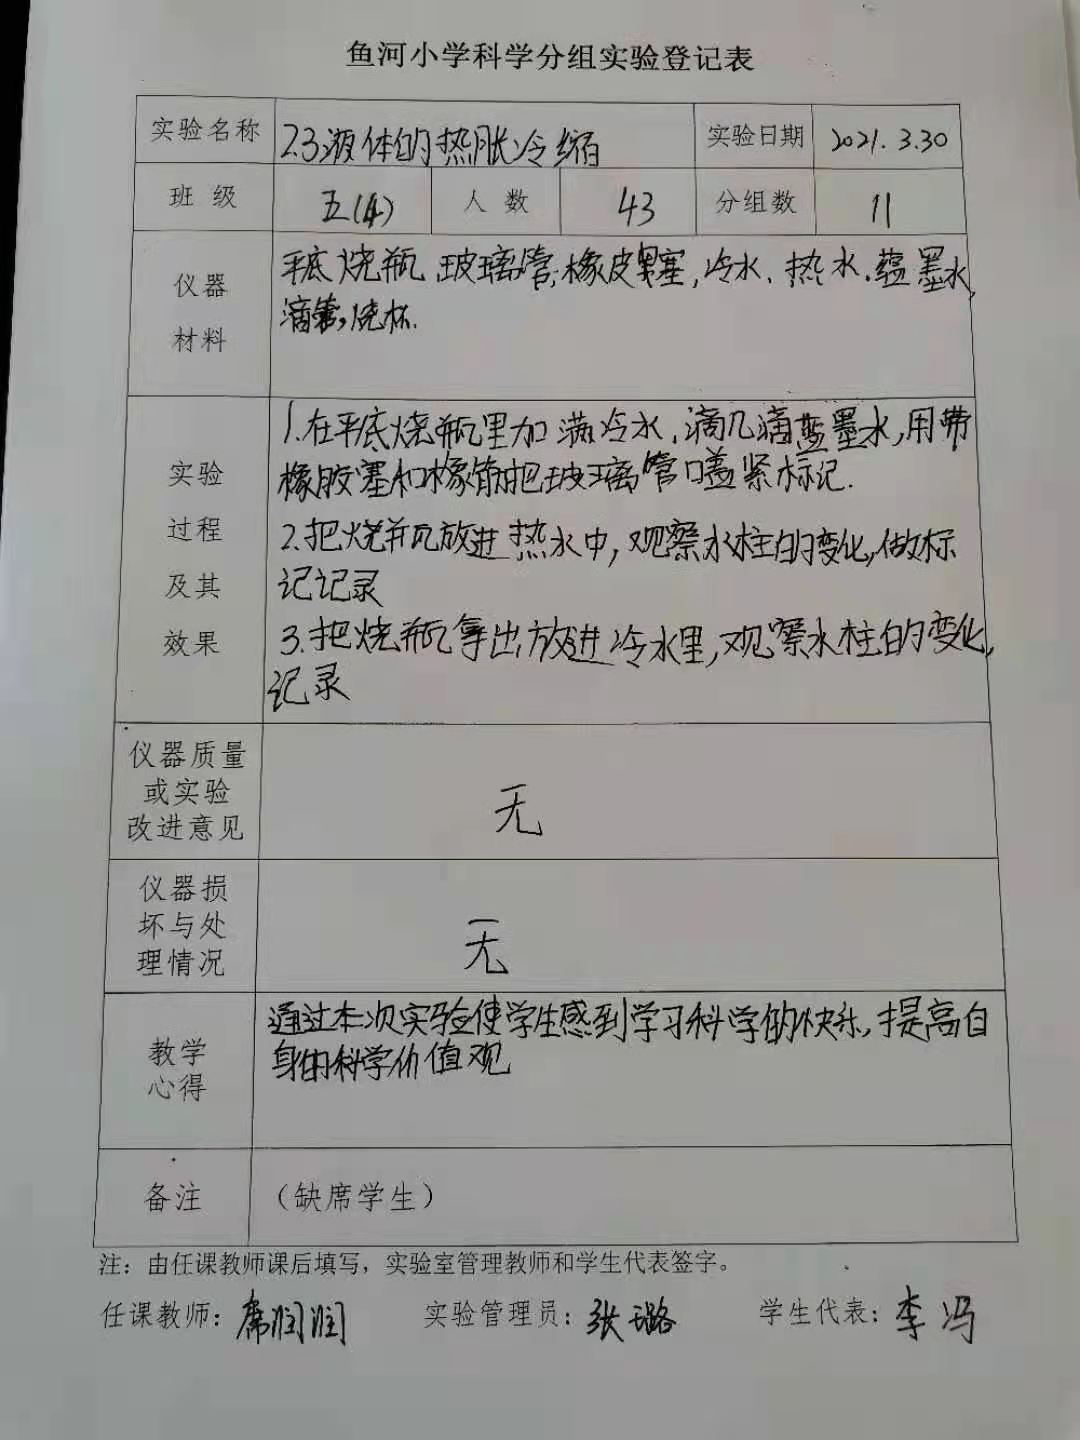 鱼河小学科学分组实验登记表
实验名称 2.3液体的热胀冷缩 实验日期 2021.3.30
班 级 五(4) 人 数 43 分组数 11
仪器
材料
平底烧瓶 玻璃管,橡皮塞,冷水、热水.蓝墨水,
滴管,烧杯.
实验
过程
及其
效果
1.在平底烧瓶里加满冷水,滴几滴蓝墨水,用带
橡胶塞和橡筋把玻璃管口盖紧标记.
2.把烧瓶放进热水中,观察水柱的变化,做标
记记录
3.把烧瓶拿出放进冷水里,观察水柱的变化,
记录
仪器质量
或实验
改进意见
无
仪器损
坏与处
理情况
无
教学
心得
通过本次实验使学生感到学习科学的快乐,提高自
身的科学价值观
备注 (缺席学生)
注：由任课教师课后填写，实验室管理教师和学生代表签字。
任课教师：席润润 实验管理员：张璐 学生代表：李冯